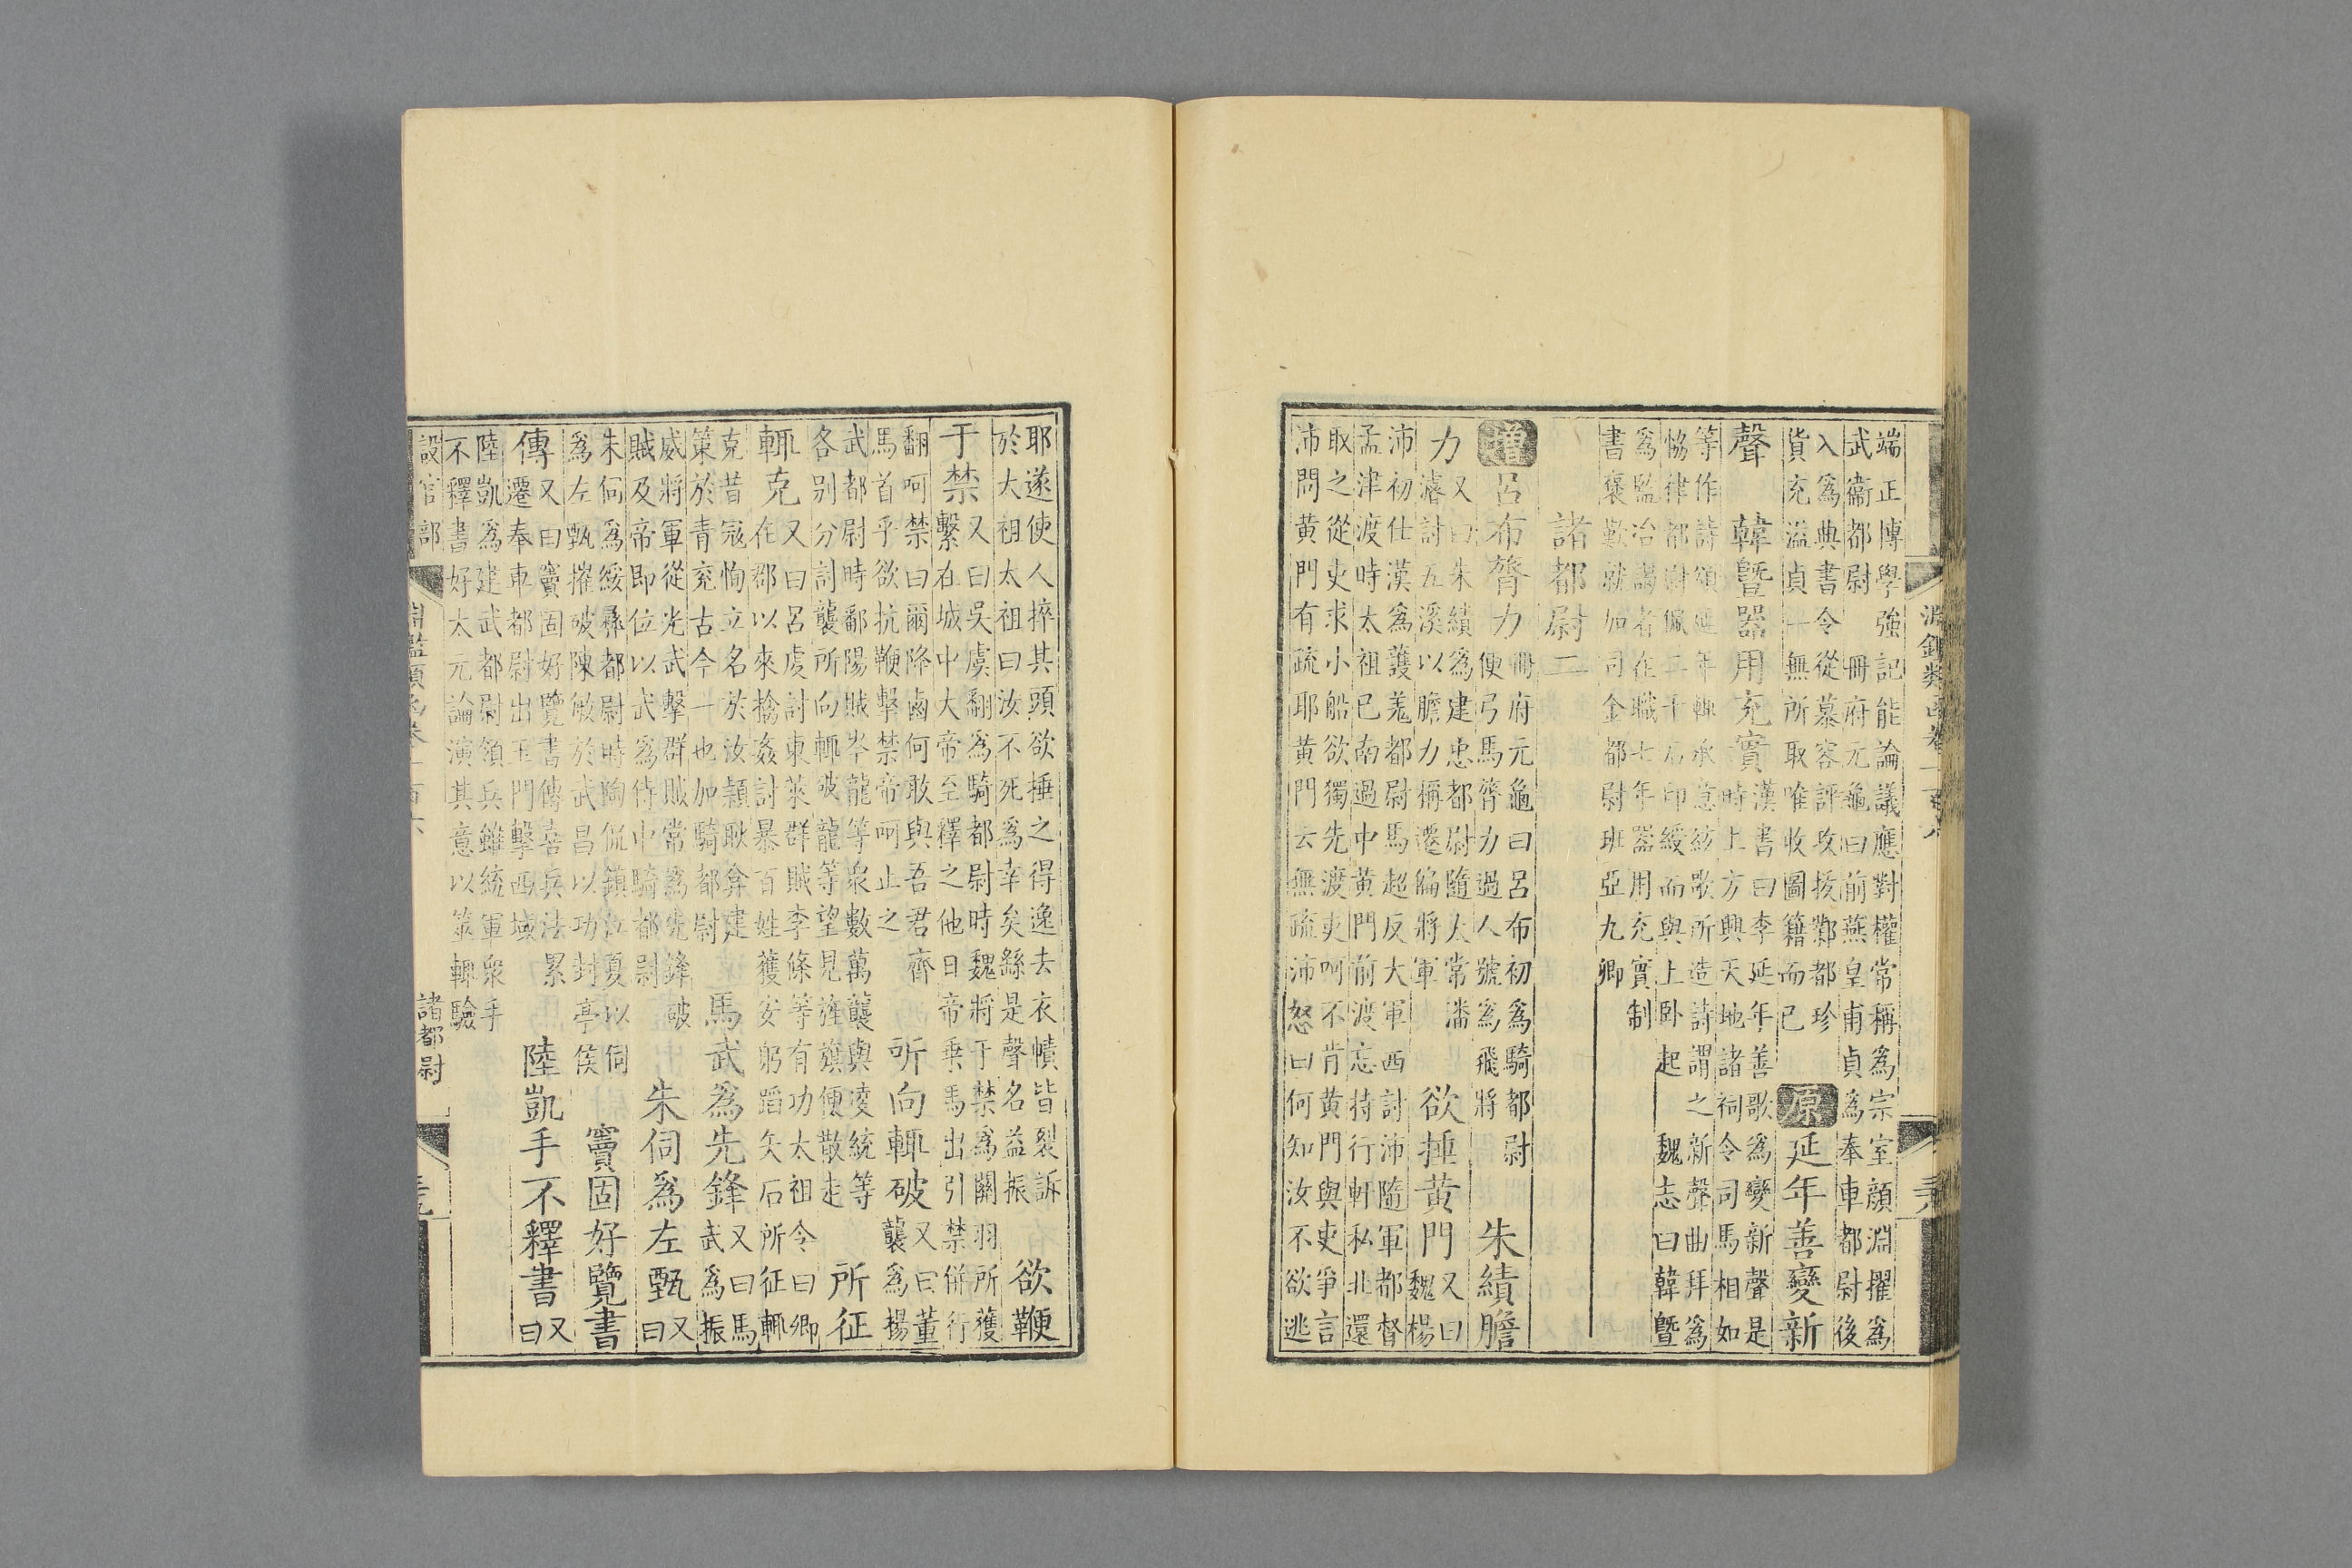 淵鑑類函卷一百六
端正博學強記能論議應對權常稱為宗室顏淵擢為
武衞都尉 冊府元龜曰前燕皇甫貞為奉車都尉後
入為典書令從慕容評攻拔鄴都珍
貨充溢貞一無所取唯收圖籍而已
原延年善變新
聲 韓暨器用充實
漢書曰李延年善歌為變新聲是
時上方興天地諸祠令司馬相如
等作詩頌延年輒承意絃歌所造詩謂之新聲曲拜為
協律都尉佩二千石印綬而與上卧起 魏志曰韓暨
為監冶謁者在職七年器用充實制
書褒歎就加司金都尉班亞九卿
諸都尉二
增呂布膂力
冊府元龜曰呂布初為騎都尉
便弓馬膂力過人號為飛將
朱績膽
力
又曰朱績為建忠都尉隨太常潘
濬討五溪以膽力稱遷偏將軍
欲捶黃門
又曰
魏楊
沛初仕漢為護羌都尉馬超反大軍西討沛隨軍都督
孟津渡時太祖已南過中黃門前渡忘持行軒私北還
取之從吏求小船欲獨先渡吏呵不肯黃門與吏爭言
沛問黃門有疏耶黃門去無疏沛怒曰何知汝不欲逃
耶遂使人捽其頭欲捶之得逸去衣幘皆裂訴
於太祖太祖曰汝不死為幸矣繇是聲名益振
欲鞭
于禁
又曰吳虞翻為騎都尉時魏將于禁為關羽所獲
繫在城中大帝至釋之他日帝乗馬出引禁併行
翻呵禁曰爾降鹵何敢與吾君齊
馬首乎欲抗鞭擊禁帝呵止之
所向輒破
又曰董
襲為揚
武都尉時鄱陽賊岑龍等衆數萬襲與凌統等
各別分討襲所向輒破龍等望見旌旗便散走
所征
輒克
又曰呂虔討東萊群賊李條等有功太祖令曰卿
在郡以來擒姦討暴百姓獲安躬蹈矢石所征輒
克昔宼恂立名於汝潁耿弇建
策於青兖古今一也加騎都尉
馬武為先鋒
又曰馬
武為振
威將軍從光武擊群賊常為先鋒破
賊及帝即位以武為侍中騎都尉
朱伺為左甄
又
曰
朱伺為綏彞都尉時陶侃鎮江夏以伺
為左甄摧破陳敏於武昌以功封亭侯
竇固好覽書
傳
又曰竇固好覽書傳喜兵法累
遷奉車都尉出玉門擊西域
陸凱手不釋書
又
曰
陸凱為建武都尉領兵雖統軍衆手
不釋書好太元論演其意以筮輒驗
設官部 諸都尉
淵鑑類函卷一百六